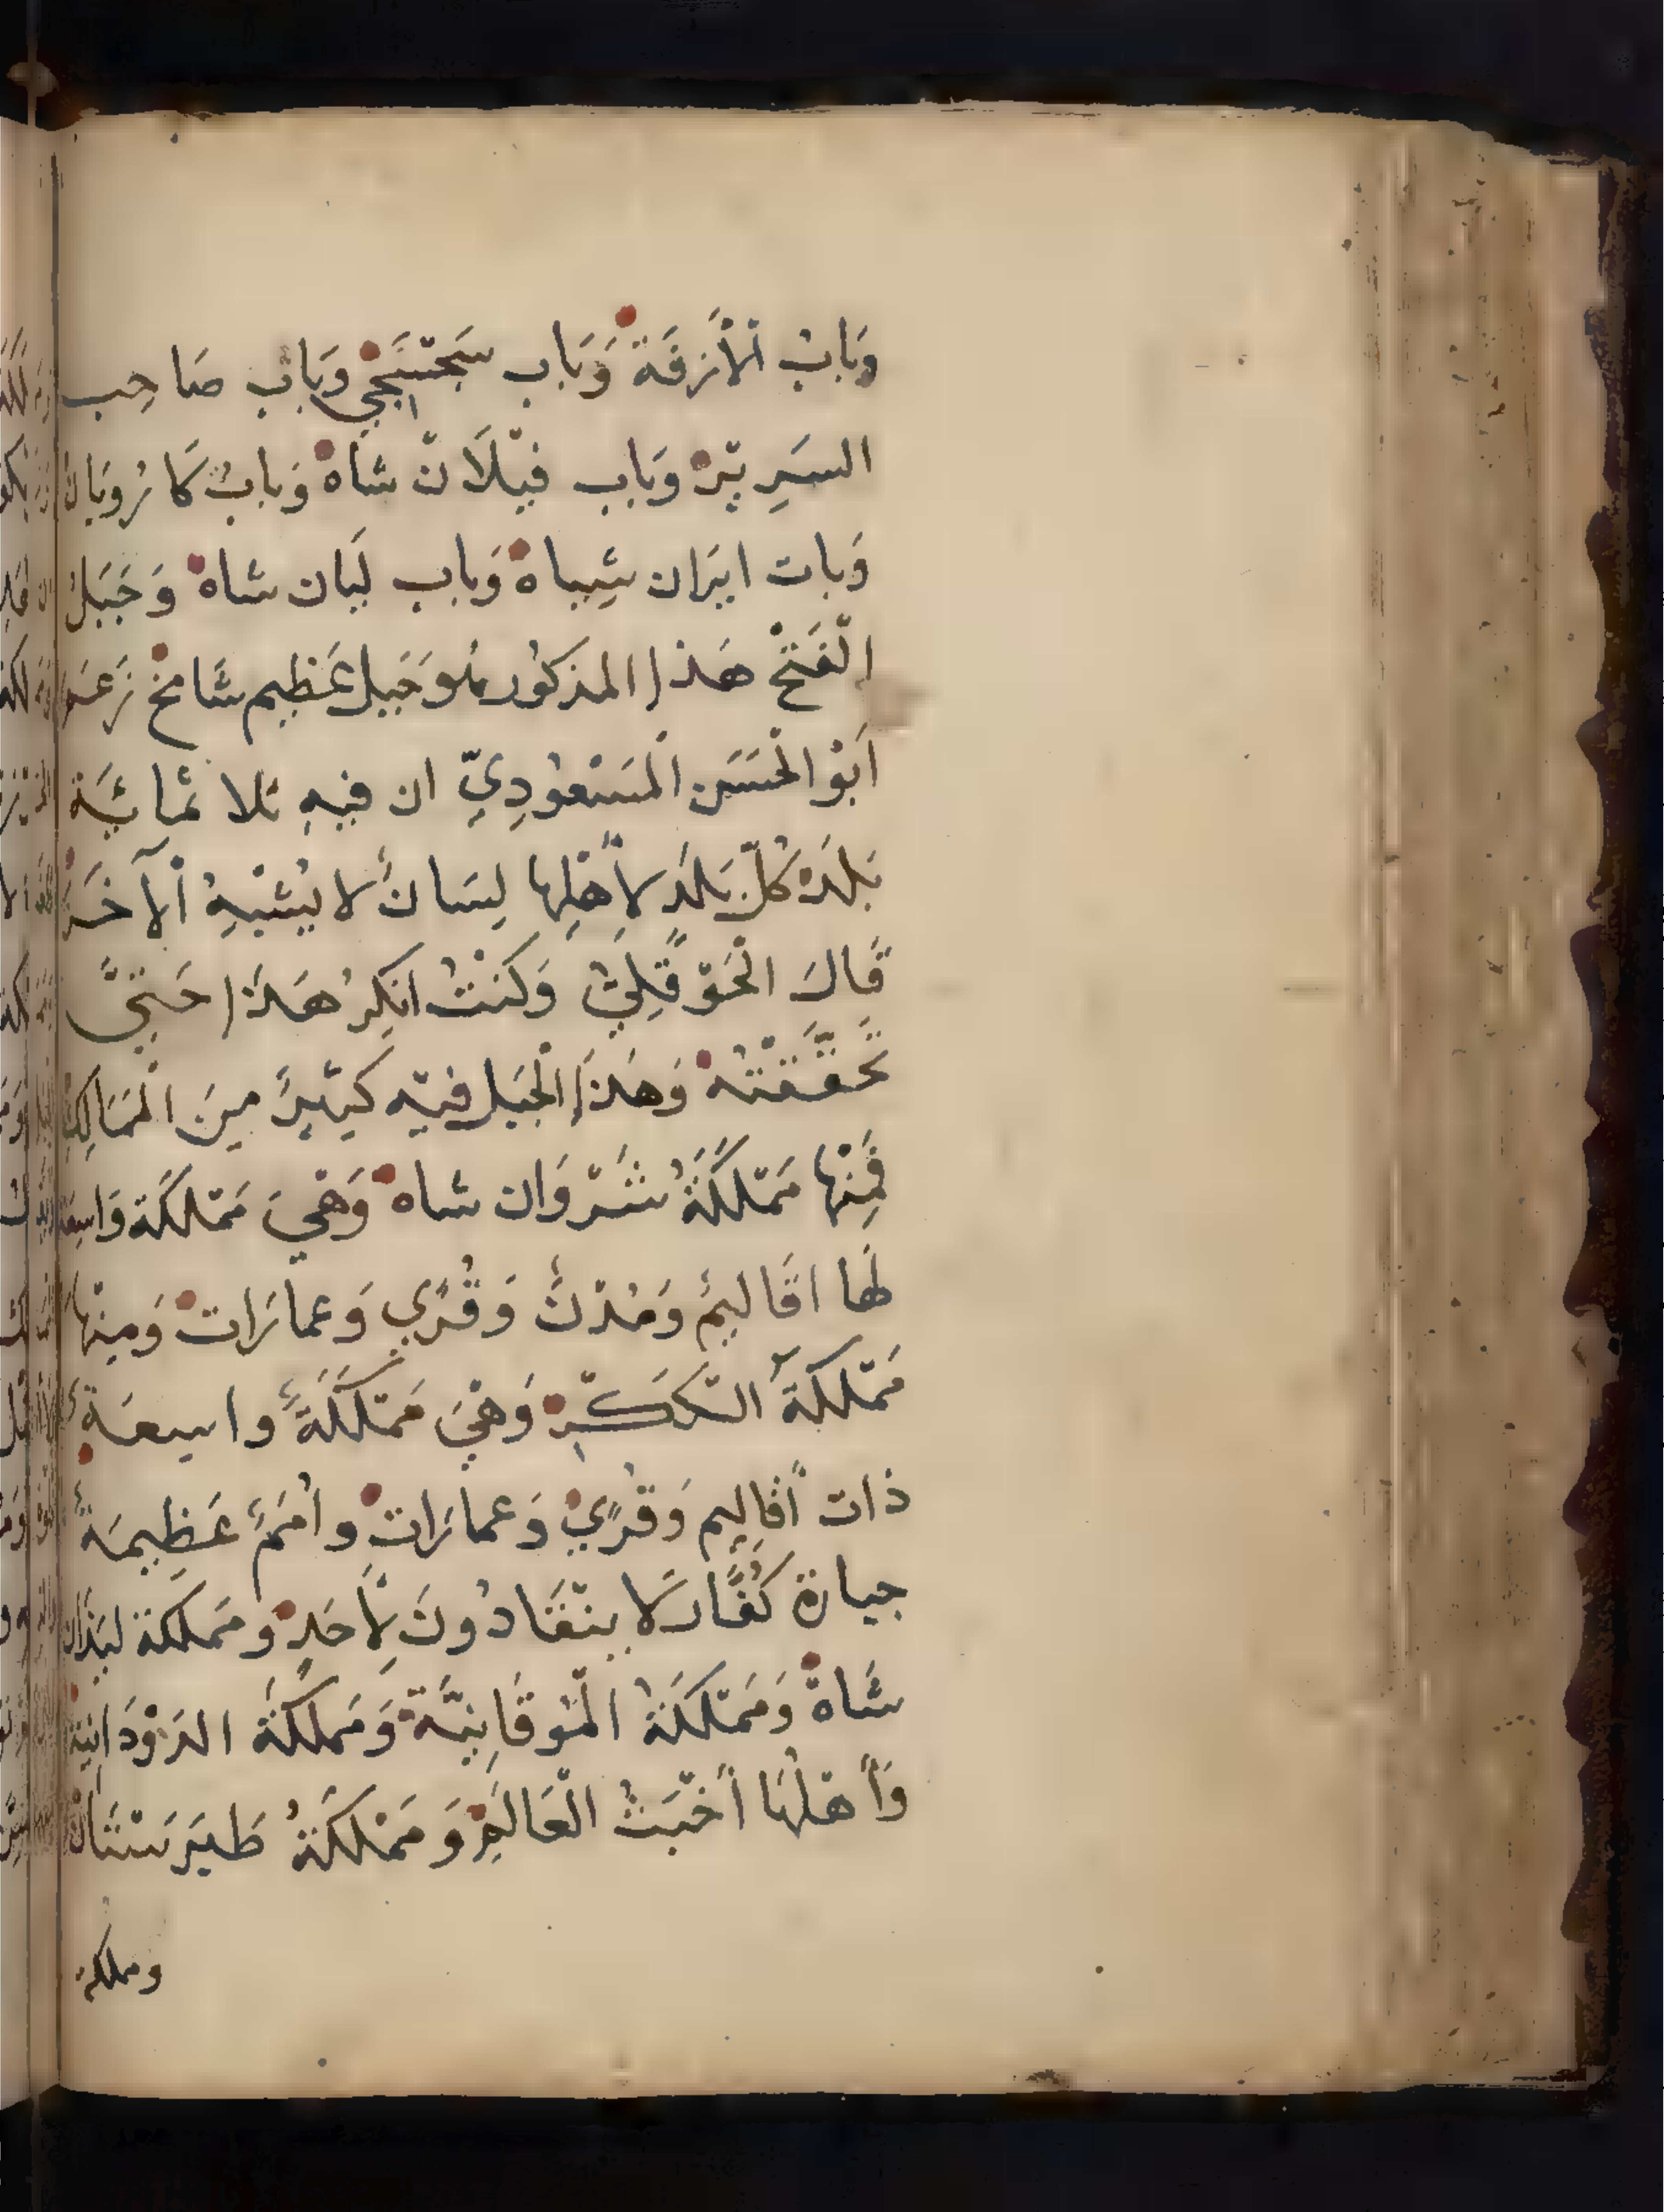 وَبَابُ الأَزقَة وَبَاب سَجَسَجِي وَبَاب صَاحِب
السَرِيْر وَبَاب فيْلَان شاه وَبابُ كَارُويَان
وَبات ايرَان شِباه وَباب لَبَان شاه وَجَبَل
الْفَتْح هَذا المذكُور هُوَ جَبَل عَظِيم شَامخ زَعَم
اَبُو الْحَسَن الْمَسْعُودِيّ ان فيهِ ثلاثمائيَّة
بَلَدْ كُلّ بَلَد لأَهْلِهَا لِسَانٌ لا يُشْبِهُ الآخَر
قَالَ الْحَوْقَلِيُّ وَكنْتُ انكِرُ هَذا حَتىَّ
تَحقَّقْتُه وَهَذا الْجَبَل فيْهِ كَثِيْرٌ مِنَ الْمَمَالِكِ
فَمِنْهَا مَمْلكَةُ شَرْوَان شاه وَهْيَ مَمْلكَة وَاسِعَة
لَها اقَاليمٌ وَمُدْنٌ وَقُرًي وَعمارَات وَمِنْهَا
مَمْلكَةَ الكَكَّز وَهْيَ مَمْلَكَةٌ واسِعَةٌ
ذات أَقاليم وَقُرًي وَعمارَات وأُمَمٌ عَظِيمَةٌ
جبارة كُفَّار لا ينْقَادُونَ لأَحَدٍ ومَملكَة ليَذَان
شَاهْ وَمَمْلكَةُ الْمُوقَانِيَّة وَمَملكَةُ الدَوْدَانِيَّة
وَأَهْلُهَا أَخْبَثُ الْعَالَم وَمَمْلكَةُ طَبَرَسْتَان
ومملكة